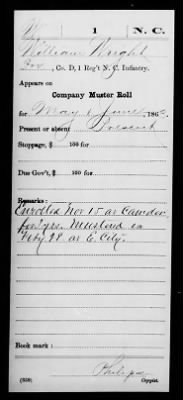 W 1 N.C.
William Wright
Co. D, 1 Reg't N.C. Infantry.
Appears on
Company Muster Roll
for May & June, 186
Present or absent Present
Stoppage, $ 100 for
Due Gov't, $ 100 for
Remarks:
Enrolled Nov 15 at Camden
for 3 yrs. Mustered in
Feby 28 at E. City.
Book mark:
(358) Copyist.